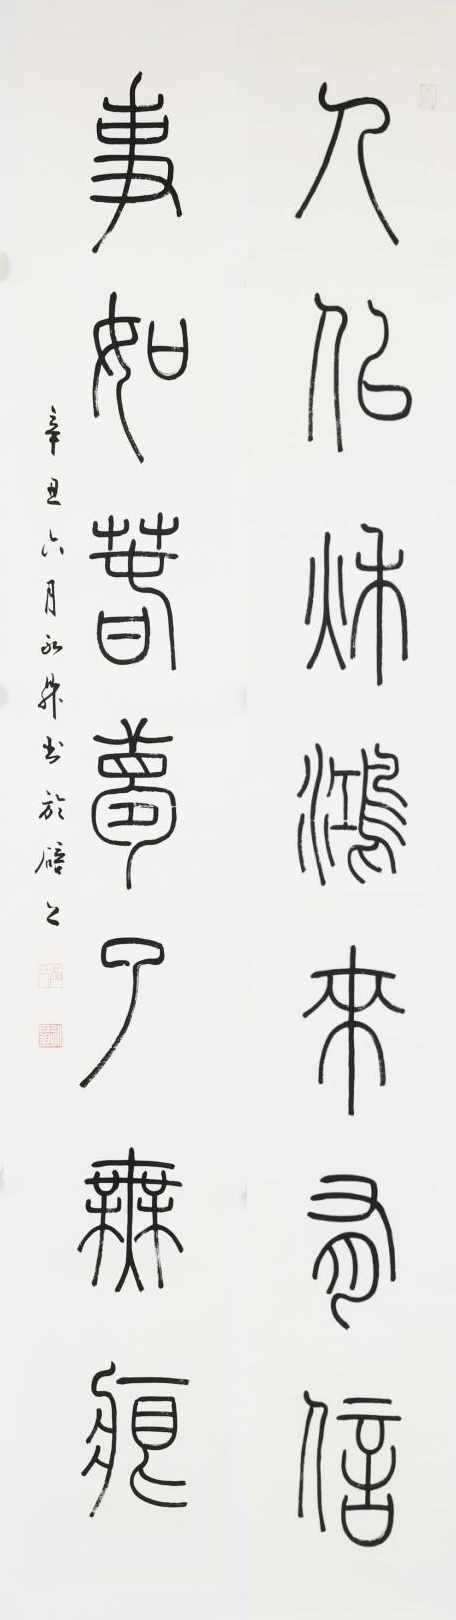 人似秋鴻來有信
事如春夢了無痕
辛丑六月永书於